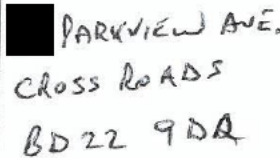 PARKVIEW AVE.
CROSS ROADS
BD22 9DR